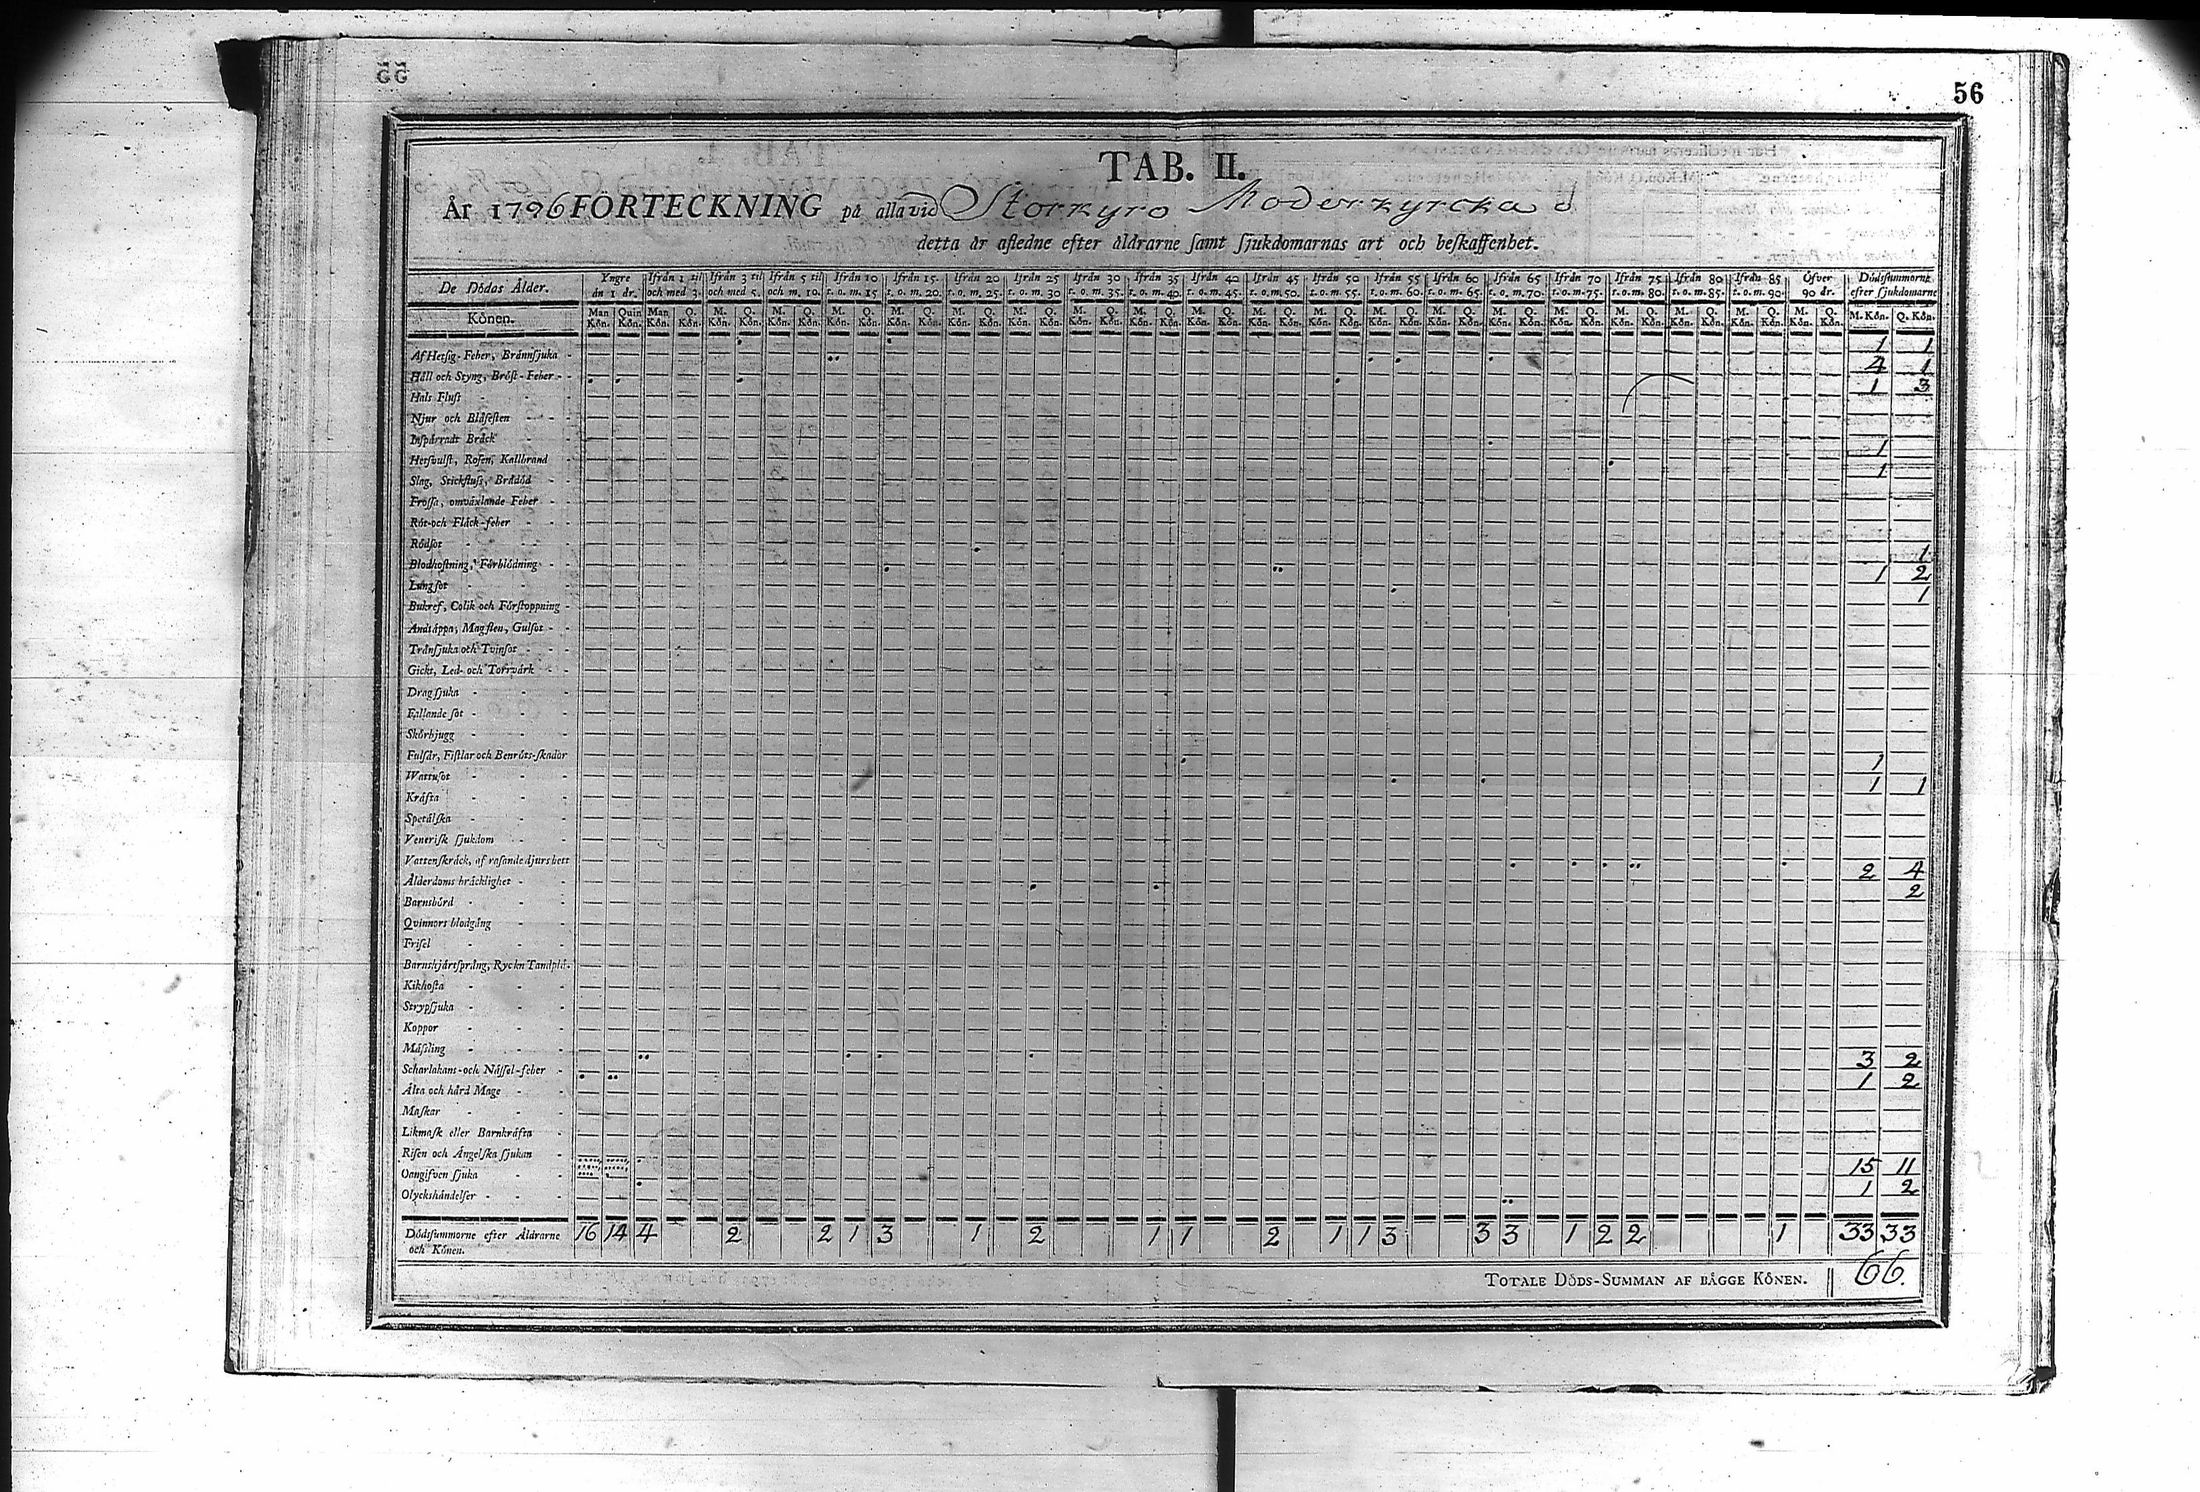 56
TAB. II.
År 1796 FÖRTECKNING på alla vid Storkyro Moderkyrcka
detta år afledne efter åldrarne samt sjukdomarnas art och beskaffenhet.
De Dödas Ålder. Yngre än 1 år. Ifrån 1 til och med 3. Ifrån 3 til och med 5. Ifrån 5 til och m. 10. Ifrån 10 t. o. m. 15 Ifrån 15. t. o. m. 20. Ifrån 20 t. o. m. 25. Ifrån 25 t. o. m. 30 Ifrån 30 t. o. m. 35. Ifrån 35 t. o. m. 40. Ifrån 40 t. o. m. 45. Ifrån 45 t. o. m. 50. Ifrån 50 t. o. m. 55. Ifrån 55 t. o. m. 60. Ifrån 60 t. o. m. 65. Ifrån 65 t. o. m. 70. Ifrån 70 t. o. m. 75. Ifrån 75 t. o. m. 80. Ifrån 80 t. o. m. 85. Ifrån 85 t. o. m. 90. Öfver 90 år. Dödssummorne efter sjukdomarne
Könen. Man Kön. Quin Kön. Man Kön. Q. Kön. M. Kön. Q. Kön. M. Kön. Q. Kön. M. Kön. Q. Kön. M. Kön. Q. Kön. M. Kön. Q. Kön. M. Kön. Q. Kön. M. Kön. Q. Kön. M. Kön. Q. Kön. M. Kön. Q. Kön. M. Kön. Q. Kön. M. Kön. Q. Kön. M. Kön. Q. Kön. M. Kön. Q. Kön. M. Kön. Q. Kön. M. Kön. Q. Kön. M. Kön. Q. Kön. M. Kön. Q. Kön. M. Kön. Q. Kön. M. Kön. Q. Kön. M. Kön. Q. Kön.
Af Hetsig-Feber, Brännsjuka 1 1
Håll och Styng, Bröst-Feber 4 1
Hals Fluss 1 3
Njur och Blåsesten
Inspärradt Bråck
Hetsvulst, Rosen, Kallbrand 1
Slag, Stickfluss, Brådöd 1
Frossa, omväxlande Feber
Röt-och Fläck-feber
Rödsot
Blodhostning, Förblödning 1
Lungsot 1 2
Bukref, Colik och Förstoppning 1
Andtäppa, Magsten, Gulsot
Trånsjuka och Tvinsot
Gickt, Led- och Torrvärk
Dragsjuka
Fallande sot
Skörbjugg
Fulsår, Fistlar och Benröts-skador 1
Wattusot 1 1
Kräfta
Spetälska
Venerisk sjukdom
Vattenskräck, af rasande djurs bett
Ålderdoms bräcklighet 2 4
Barnsbörd 2
Qvinnors blodgång
Frisel
Barnshjärtsprång, Ryck n Tandpl.
Kikhosta
Strypsjuka
Koppor
Mässling 3 2
Scharlakans-och Nässel-feber 1 2
Älta och hård Mage
Maskar
Likmask eller Barnkräfta
Risen och Ängelska sjukan
Oangifven sjuka 15 11
Olyckshändelser 1 2
Dödssummorne efter Åldrarne och Könen. 16 14 4 2 2 1 3 1 2 1 1 2 1 1 3 3 3 1 2 2 1 33 33
TOTALE DÖDS-SUMMAN AF BÄGGE KÖNEN. 66.